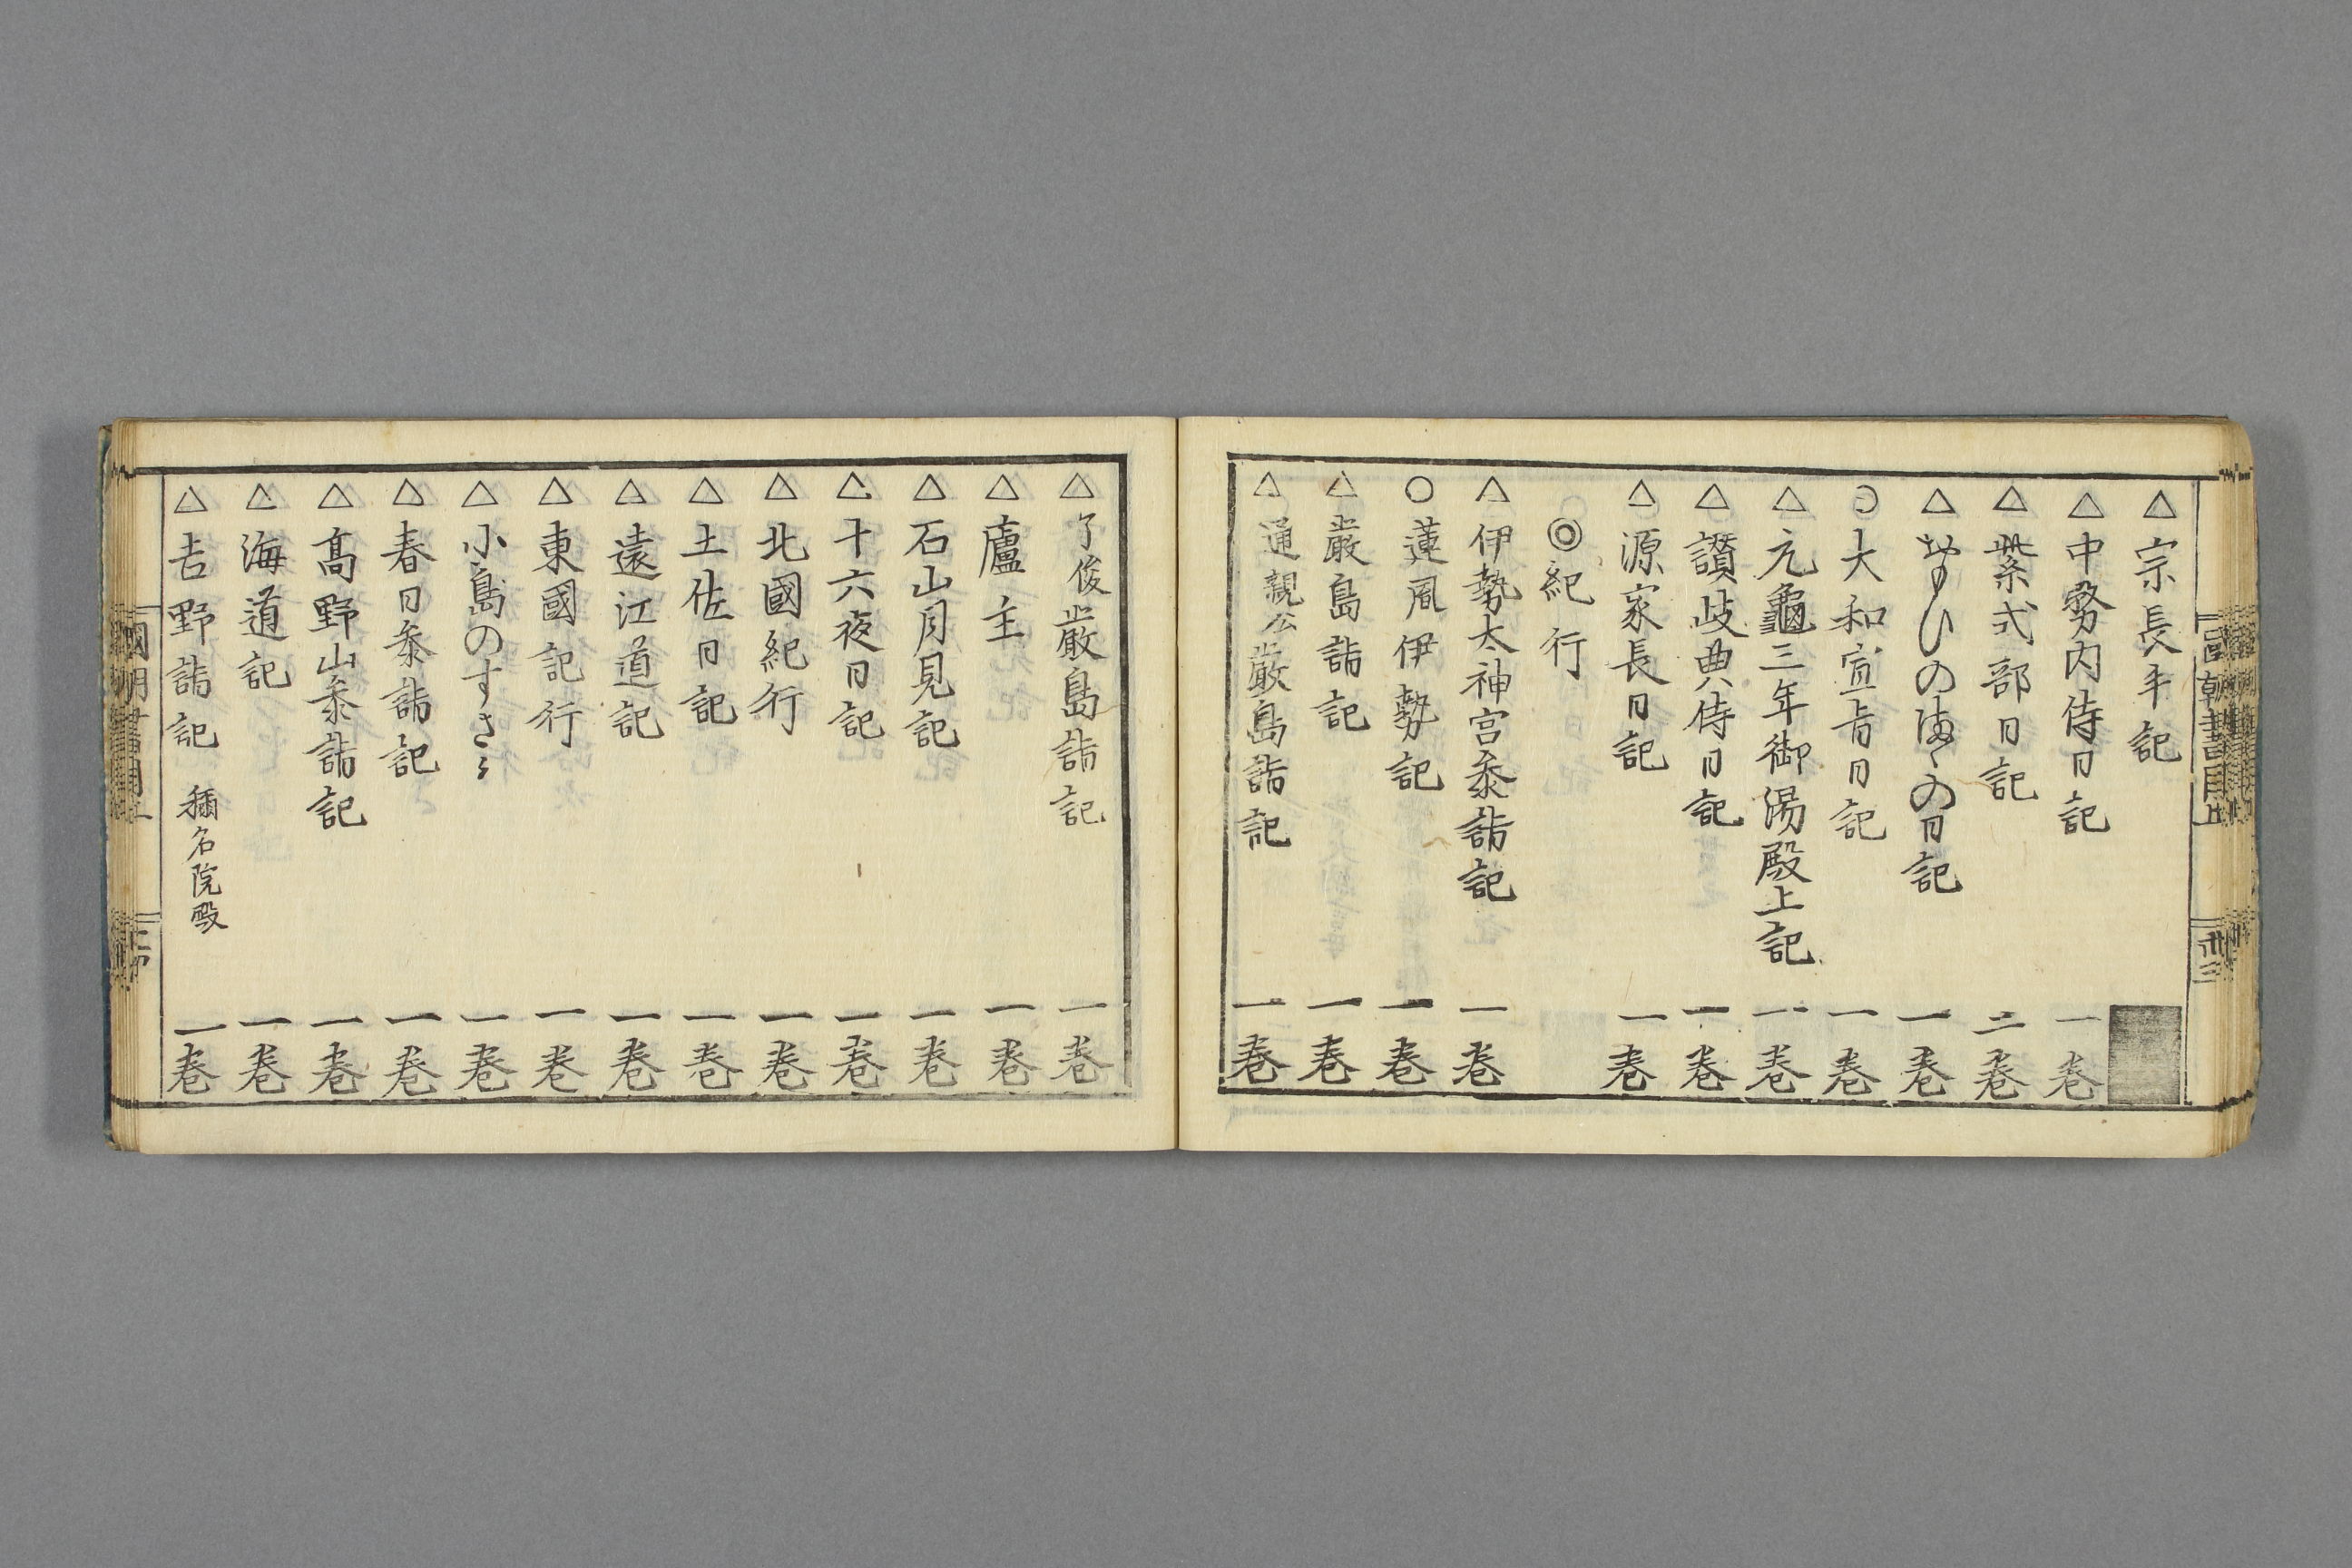 國朝書目上
卅三
△宗長手記
△中務内侍日記 一巻
△紫式部日記 二巻
△おもひのまゝの日記 一巻
○大和宣旨日記 一巻
△元龜三年御湯殿上記 一巻
△讃岐典侍日記 一巻
△源家長日記 一巻
◎紀行
△伊勢太神宮参詣記 一巻
○蓮胤伊勢記 一巻
△嚴島詣記 一巻
△通親公嚴島詣記 一巻
△了俊嚴島詣記 一巻
△廬主 一巻
△石山月見記 一巻
△十六夜日記 一巻
△北國紀行 一巻
△土佐日記 一巻
△遠江道記 一巻
△東國記行 一巻
△小島のすさミ 一巻
△春日参詣記 一巻
△髙野山参詣記 一巻
△海道記 一巻
△吉野詣記 稱名院殿 一巻